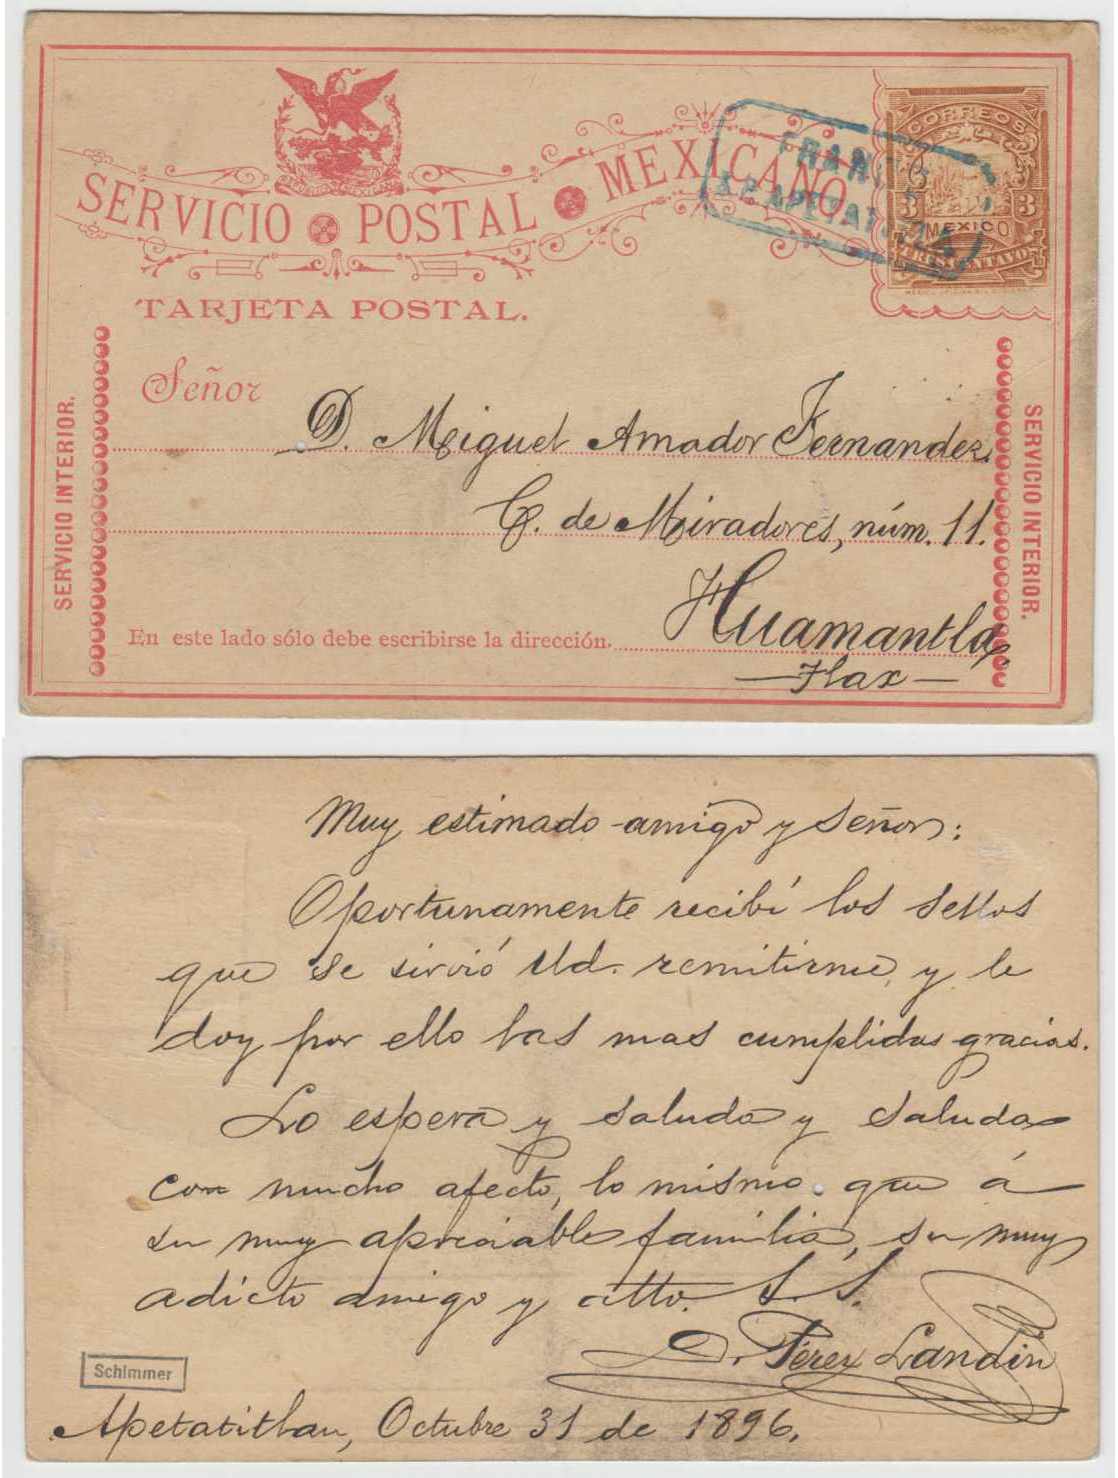 SERVICIO POSTAL MEXICANO
TARJETA POSTAL.
CORREOS
3 3
MEXICO
TRES CENTAVOS
FRANCO
APETATITLAN
SERVICIO INTERIOR.
SERVICIO INTERIOR.
Señor
D. Miguel Amador Fernandez.
C. de Miradores, núm. 11.
Huamantla
En este lado sólo debe escribirse la dirección.
—Tlax—
Muy estimado amigo y señor:
Oportunamente recibí los sellos
que se sirvió Ud. remitirme, y le
doy por ello las mas cumplidas gracias.
Lo espera y saluda y saluda
con mucho afecto, lo mismo que á
su muy apreciable familia, su muy
adicto amigo y atto. S. S.
D. Pérez Landín
Schimmer
Apetatitlan, Octubre 31 de 1896.